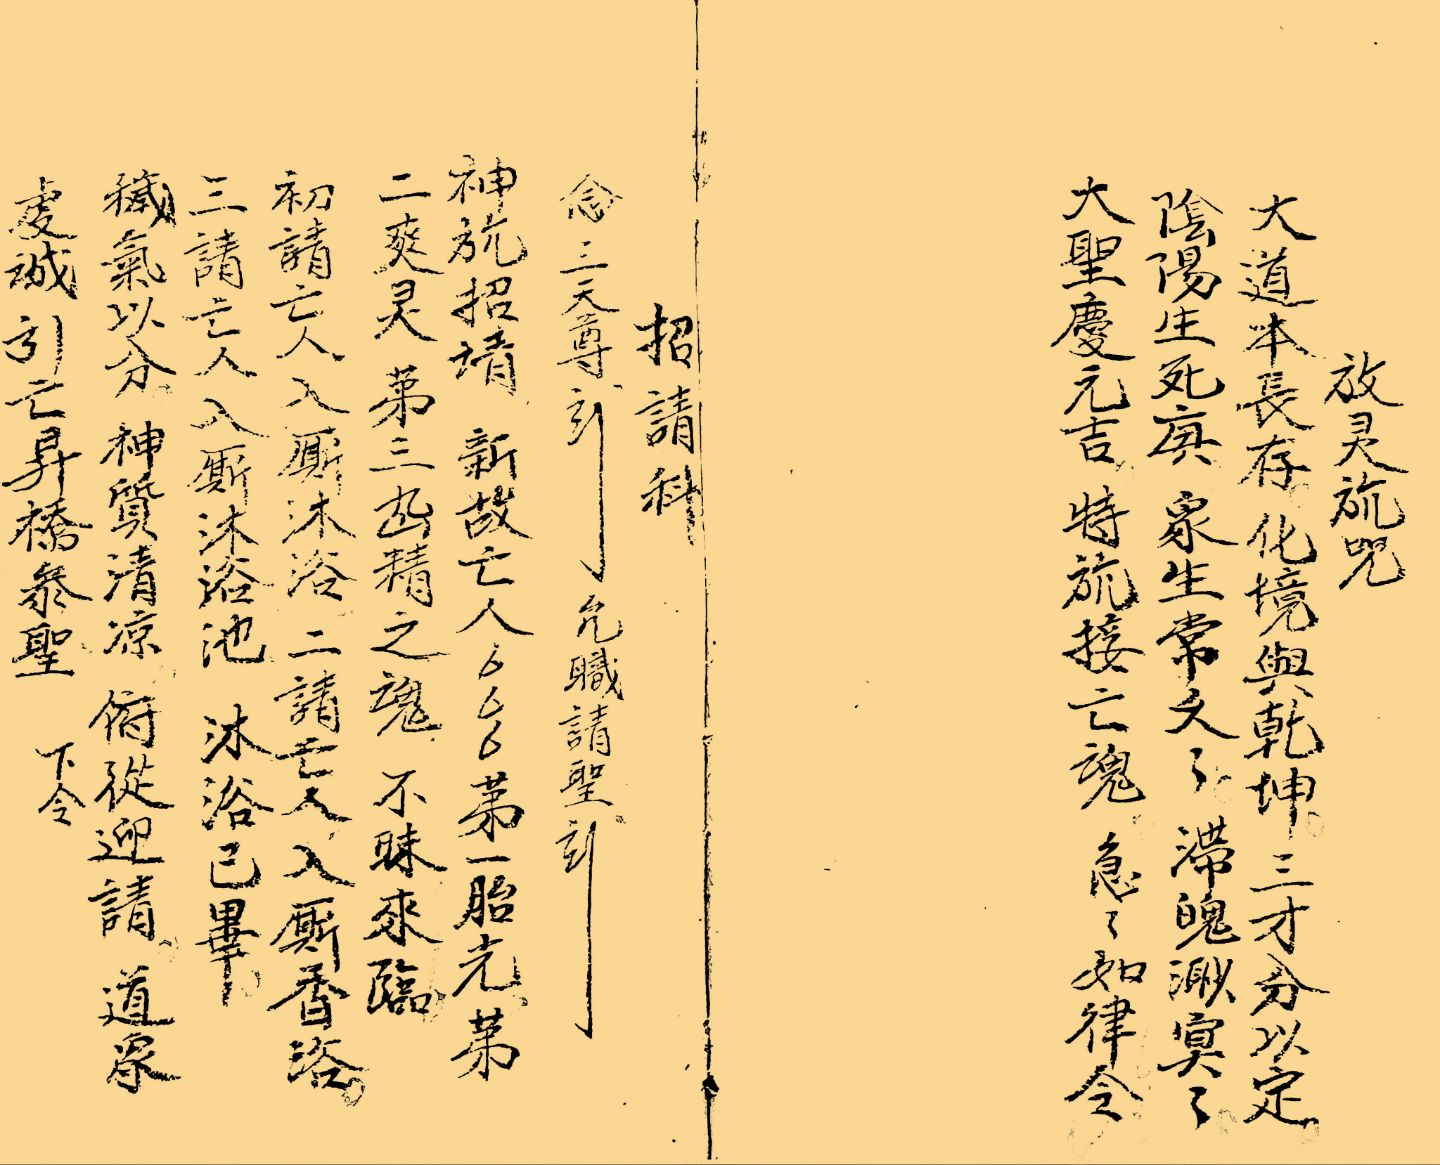 放灵旒咒
大道本長存 化境與乾坤 三才分以定
陰陽生死 衆生常久々 滞魄溟冥々
大聖慶元吉 特旒接亡魂 急々如律令
招請科
念三天尊引 允職請聖引
神旒招請 新故亡人厶厶厶第一胎光第
二爽灵 第三幽精之魂 不昧來臨
初請亡人入厮沐浴 二請亡人入厮香浴
三請亡人入厮沐浴池 沐浴已畢
穢氣以分 神質清凉 俯從迎請 道衆
虔誠 引亡昇橋叅聖 下令